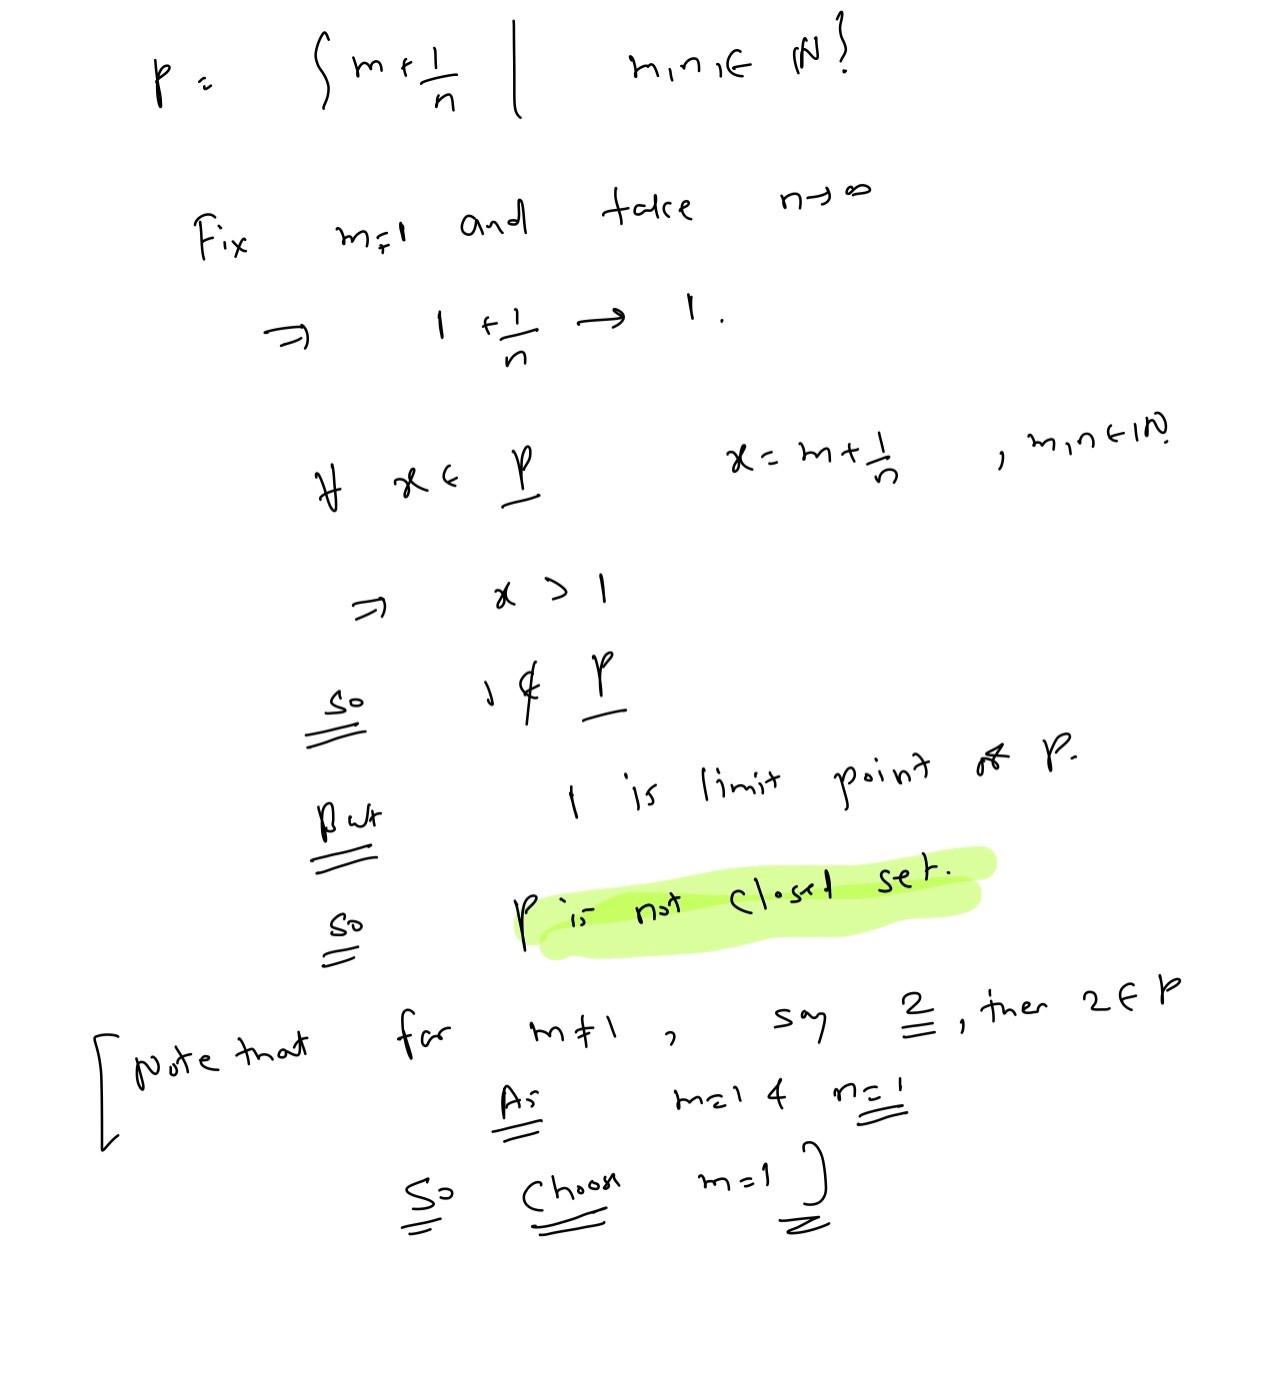 P = { m + 1/n | m, n, ∈ ℕ }
Fix m=1 and take n→∞
⇒ 1 + 1/n → 1.
∀ x ∈ P x = m + 1/n , m, n ∈ ℕ.
⇒ x > 1
So 1 ∉ P
But 1 is limit point of P.
So P is not closed set.
[ Note that for m≠1, say 2, then 2 ∈ P
As m=1 & n=1
So Choose m=1 ]